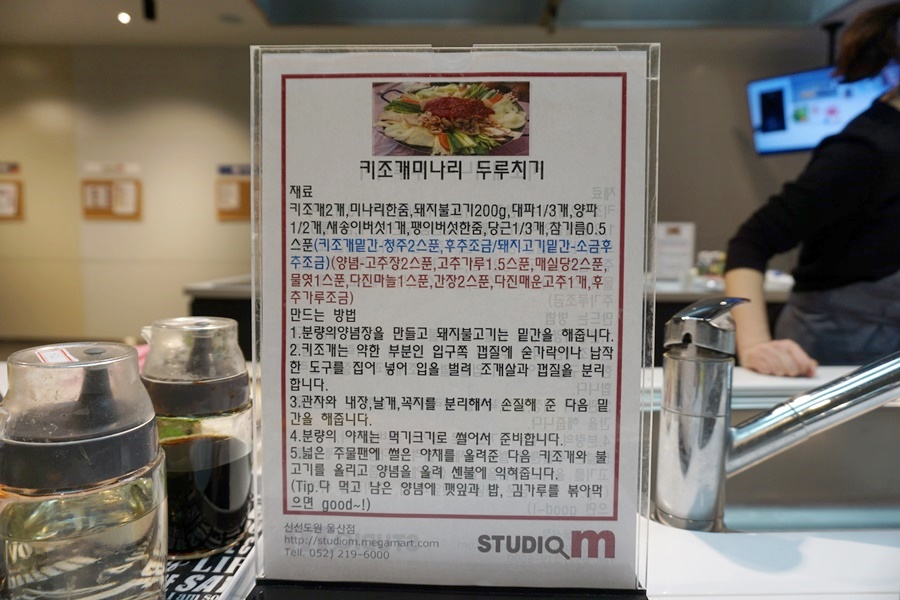 키조개미나리 두루치기
재료
키조개2개,미나리한줌,돼지불고기200g,대파1/3개,양파
1/2개,새송이버섯1개,팽이버섯한줌,당근1/3개,참기름0.5
스푼(키조개밑간-청주2스푼,후추조금/돼지고기밑간-소금후
추조금)(양념-고추장2스푼,고추가루1.5스푼,매실당2스푼,
물엿1스푼,다진마늘1스푼,간장2스푼,다진매운고추1개,후
추가루조금)
만드는 방법
1.분량의양념장을 만들고 돼지불고기는 밑간을 해줍니다.
2.키조개는 약한 부분인 입구쪽 껍질에 숟가락이나 납작
한 도구를 집어 넣어 입을 벌려 조개살과 껍질을 분리
합니다.
3.관자와 내장,날개,꼭지를 분리해서 손질해 준 다음 밑
간을 해줍니다.
4.분량의 야채는 먹기크기로 썰어서 준비합니다.
5.넓은 주물팬에 썰은 야채를 올려준 다음 키조개와 불
고기를 올리고 양념을 올려 센불에 익혀줍니다.
(Tip.다 먹고 남은 양념에 깻잎과 밥, 김가루를 볶아먹
으면 good~!)
신선도원 울산점
http://studiom.megamart.com
Tell. 052) 219-6000
STUDIO m